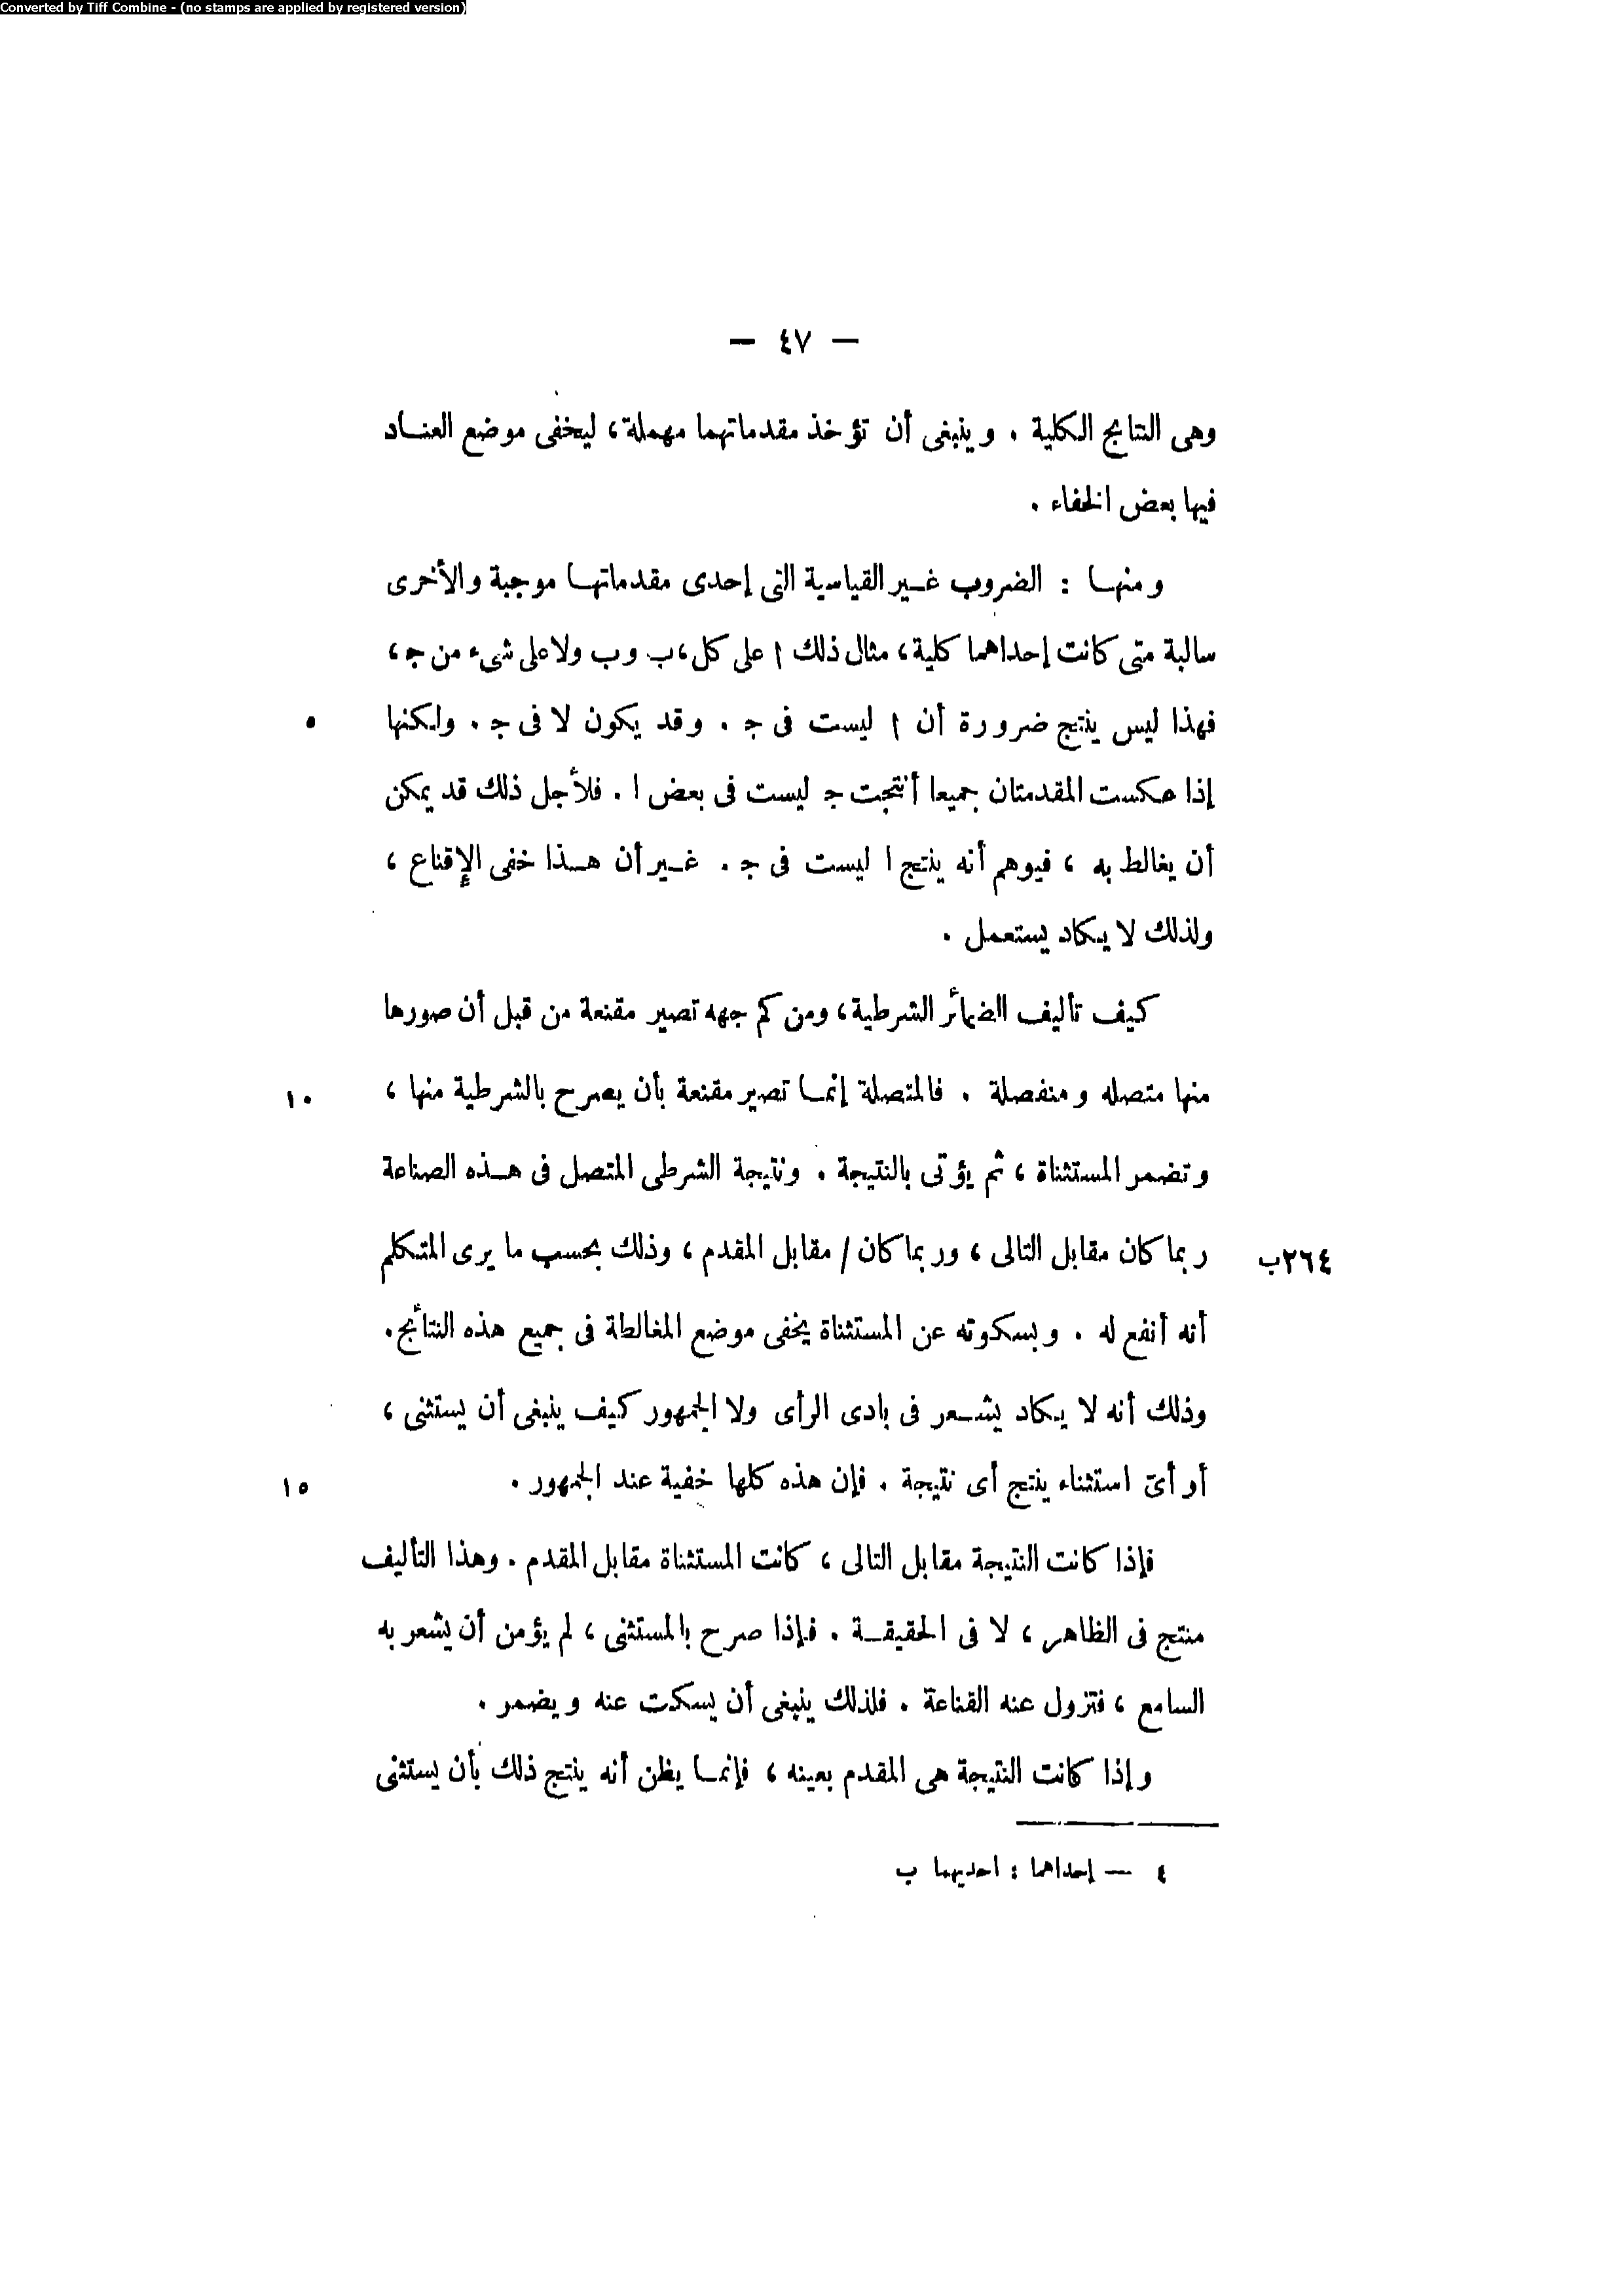 Converted by Tiff Combine - (no stamps are applied by registered version)
— ٤٧ —
وهى النتايج الكلية . وينبغى أن تؤخذ مقدماتهما مهملة، ليخفى موضع العناد
فيها بعض الخفاء .
ومنها : الضروب غير القياسية التى إحدى مقدماتها موجبة والأخرى
سالبة متى كانت إحداهما كلية، مثال ذلك ا على كل، ب وب ولا على شىء من ج،
فهذا ليس ينتج ضرورة أن ا ليست فى ج . وقد يكون لا فى ج . ولكنها ٥
إذا عكست المقدمتان جميعا أنتجت ج ليست فى بعض ا . فلأجل ذلك قد يمكن
أن يغالط به ، فيوهم أنه ينتج ا ليست فى ج . غير أن هذا خفى الإقناع ،
ولذلك لا يكاد يستعمل .
كيف تأليف الضمائر الشرطية، ومن كم جهه تصير مقنعة من قبل أن صورها
منها متصله ومنفصلة . فالمتصلة إنما تصير مقنعة بأن يصرح بالشرطية منها ، ١٠
وتضمر المستثناة ، ثم يؤتى بالنتيجة . ونتيجة الشرطى المتصل فى هذه الصناعة
ربما كان مقابل التالى ، وربما كان / مقابل المقدم ، وذلك بحسب ما يرى المتكلم ٢٦٤ب
أنه أنفع له . وبسكوته عن المستثناة يخفى موضع المغالطة فى جميع هذه النتائج .
وذلك أنه لا يكاد يشعر فى بادى الرأى ولا الجمهور كيف ينبغى أن يستثنى ،
أو أىّ استثناء ينتج أى نتيجة . فإن هذه كلها خفية عند الجمهور . ١٥
فإذا كانت النتيجة مقابل التالى ، كانت المستثناة مقابل المقدم . وهذا التأليف
منتج فى الظاهر ، لا فى الحقيقة . فإذا صرح بالمستثنى ، لم يؤمن أن يشعر به
السامع ، فتزول عنه القناعة . فلذلك ينبغى أن يسكت عنه ويضمر .
وإذا كانت النتيجة هى المقدم بعينه ، فإنما يظن أنه ينتج ذلك بأن يستثنى
٤ — إحداهما : احديهما ب